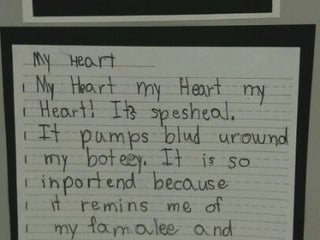 My Heart
My Heart my Heart my
Heart! It's spesheal.
It pumps blud urownd
my boteey. It is so
inportend because
it remins me of
my famalee and